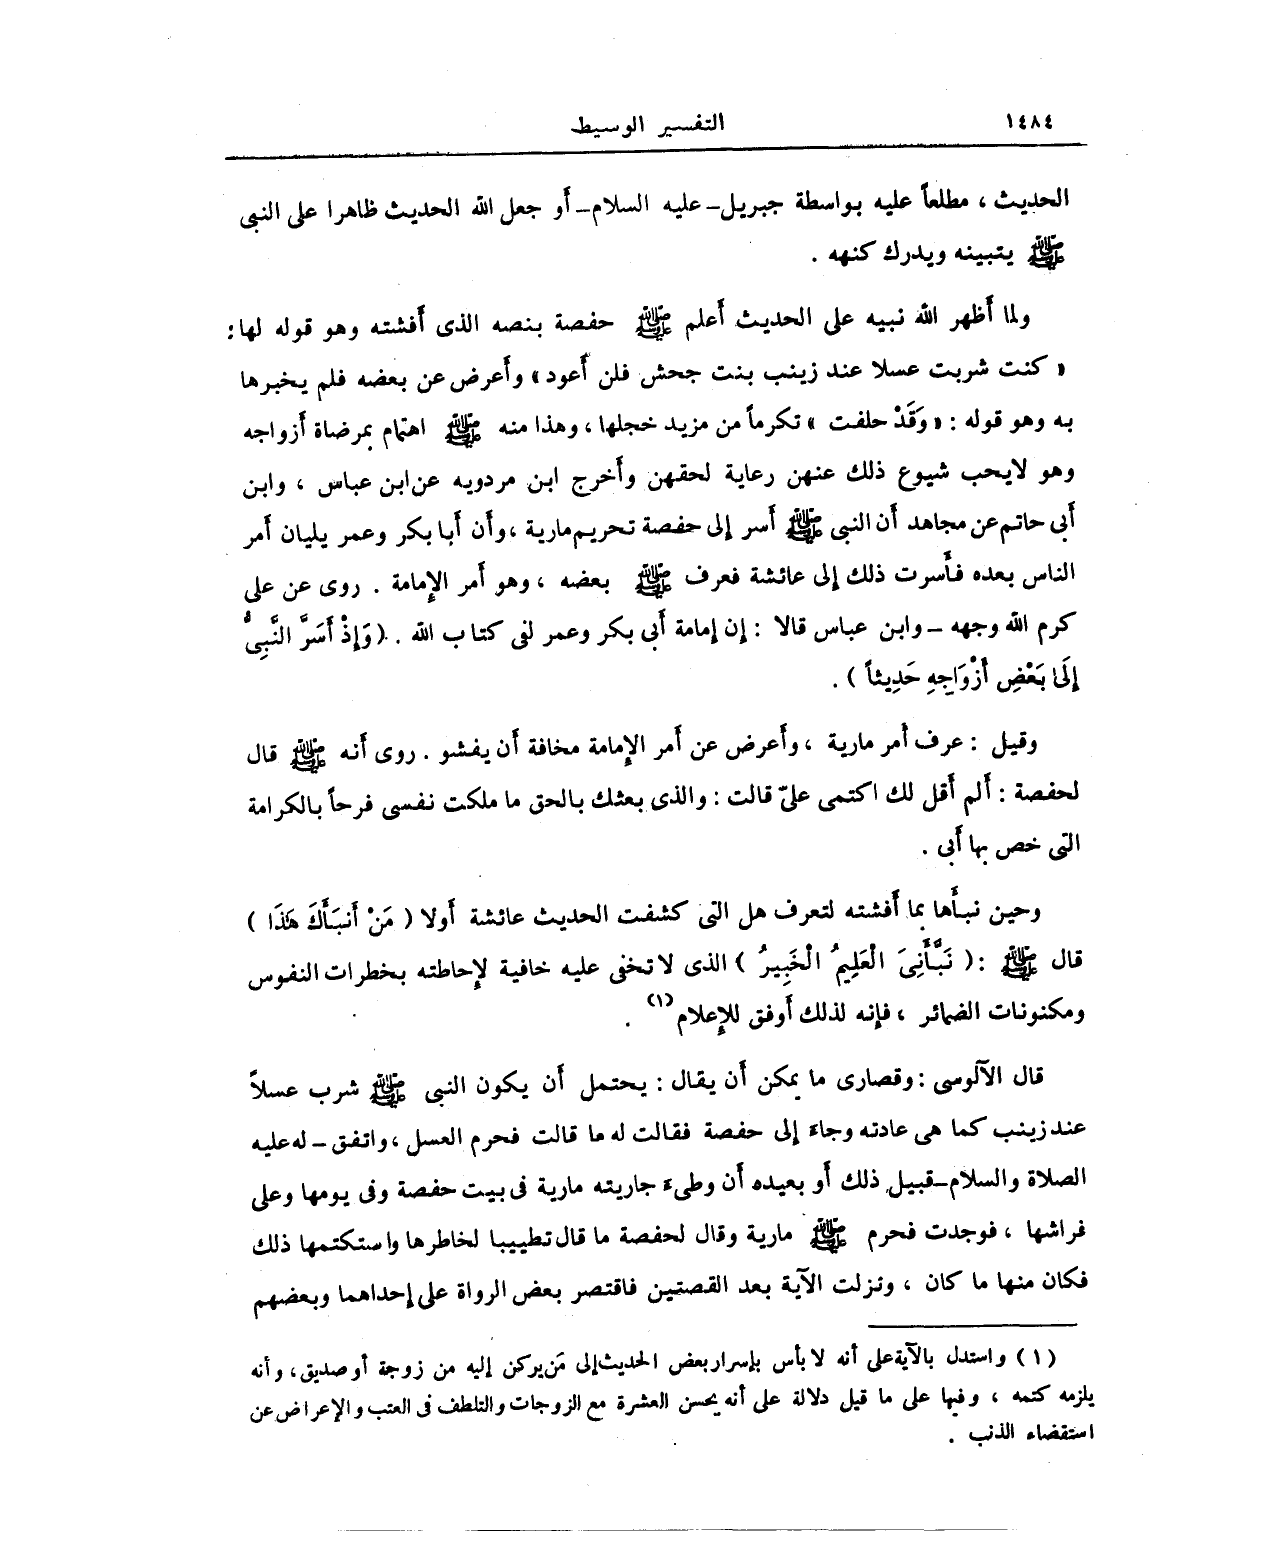 ١٤٨٤ التفسير الوسيط
الحديث ، مطلعاً عليه بواسطة جبريل ــ عليه السلام ــ أو جعل الله الحديث ظاهرا على النبى
ﷺ يتبينه ويدرك كنهه .
ولما أظهر الله نبيه على الحديث أعلم ﷺ حفصة بنصه الذى أفشته وهو قوله لها :
« كنت شربت عسلا عند زينب بنت جحش فلن أعود » وأعرض عن بعضه فلم يخبرها
به وهو قوله : « وَقَدْ حلفت » تكرماً من مزيد خجلها ، وهذا منه ﷺ اهتمام بمرضاة أزواجه
وهو لايحب شيوع ذلك عنهن رعاية لحقهن وأخرج ابن مردويه عن ابن عباس ، وابن
أبى حاتم عن مجاهد أن النبى ﷺ أسر إلى حفصة تحريم مارية ، وأن أبا بكر وعمر يليان أمر
الناس بعده فأسرت ذلك إلى عائشة فعرف ﷺ بعضه ، وهو أمر الإمامة . روى عن على
كرم الله وجهه ــ وابن عباس قالا : إن إمامة أبى بكر وعمر لفى كتاب الله . ( وَإِذْ أَسَرَّ النَّبِىُّ
إِلَىٰ بَعْضِ أَزْوَاجِهِ حَدِيثاً ) .
وقيل : عرف أمر مارية ، وأعرض عن أمر الإمامة مخافة أن يفشو . روى أنه ﷺ قال
لحفصة : ألم أقل لك اكتمى علىّ قالت : والذى بعثك بالحق ما ملكت نفسى فرحاً بالكرامة
التى خص بها أبى .
وحين نبأها بما أفشته لتعرف هل التى كشفت الحديث عائشة أولا ( مَنْ أَنبَأَكَ هَذَا )
قال ﷺ : ( نَبَّأَنِىَ الْعَلِيمُ الْخَبِيرُ ) الذى لا تخفى عليه خافية لإحاطته بخطرات النفوس
ومكنونات الضمائر ، فإنه لذلك أوفق للإعلام (١) .
قال الآلوسى : وقصارى ما يمكن أن يقال : يحتمل أن يكون النبى ﷺ شرب عسلاً
عند زينب كما هى عادته وجاء إلى حفصة فقالت له ما قالت فحرم العسل ، واتفق ــ له عليه
الصلاة والسلام ــ قبيل ذلك أو بعيده أن وطىء جاريته مارية فى بيت حفصة وفى يومها وعلى
فراشها ، فوجدت فحرم ﷺ مارية وقال لحفصة ما قال تطييبا لخاطرها واستكتمها ذلك
فكان منها ما كان ، ونزلت الآية بعد القصتين فاقتصر بعض الرواة على إحداهما وبعضهم
(١) واستدل بالآية على أنه لا بأس بإسرار بعض الحديث إلى مَن يركن إليه من زوجة أو صديق ، وأنه
يلزمه كتمه ، وفيها على ما قيل دلالة على أنه يحسن العشرة مع الزوجات والتلطف فى العتب والإعراض عن
استقضاء الذنب .